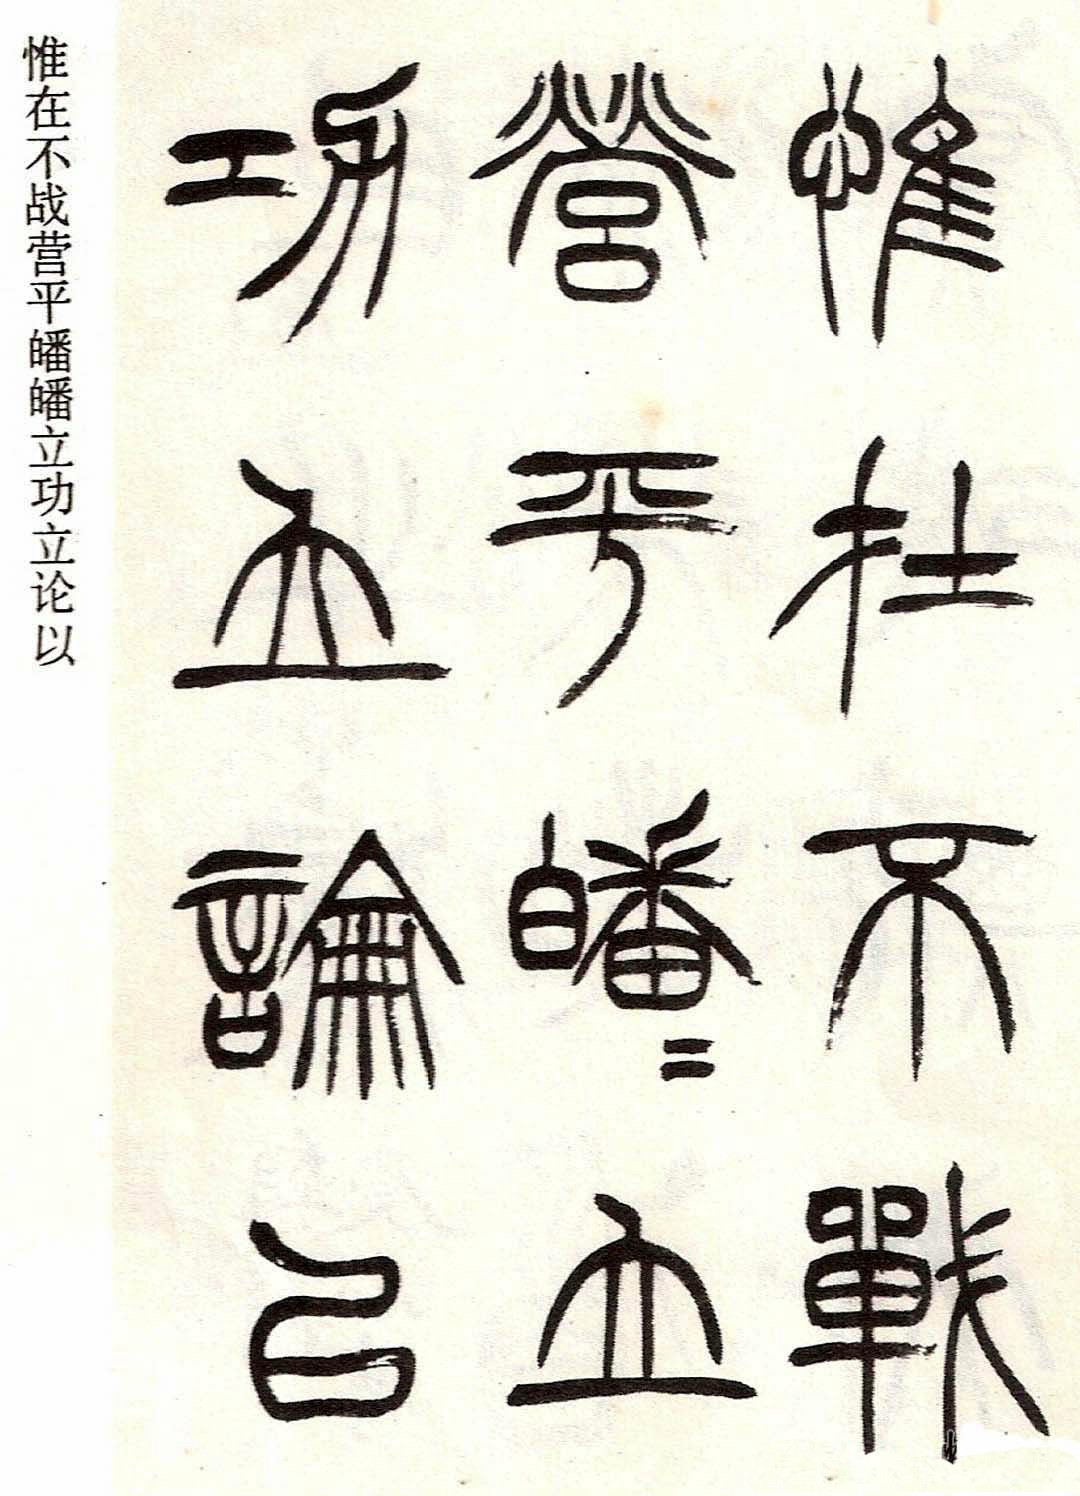 惟在不戰
營平皤〻立
功立論以
惟在不战营平皤皤立功立论以